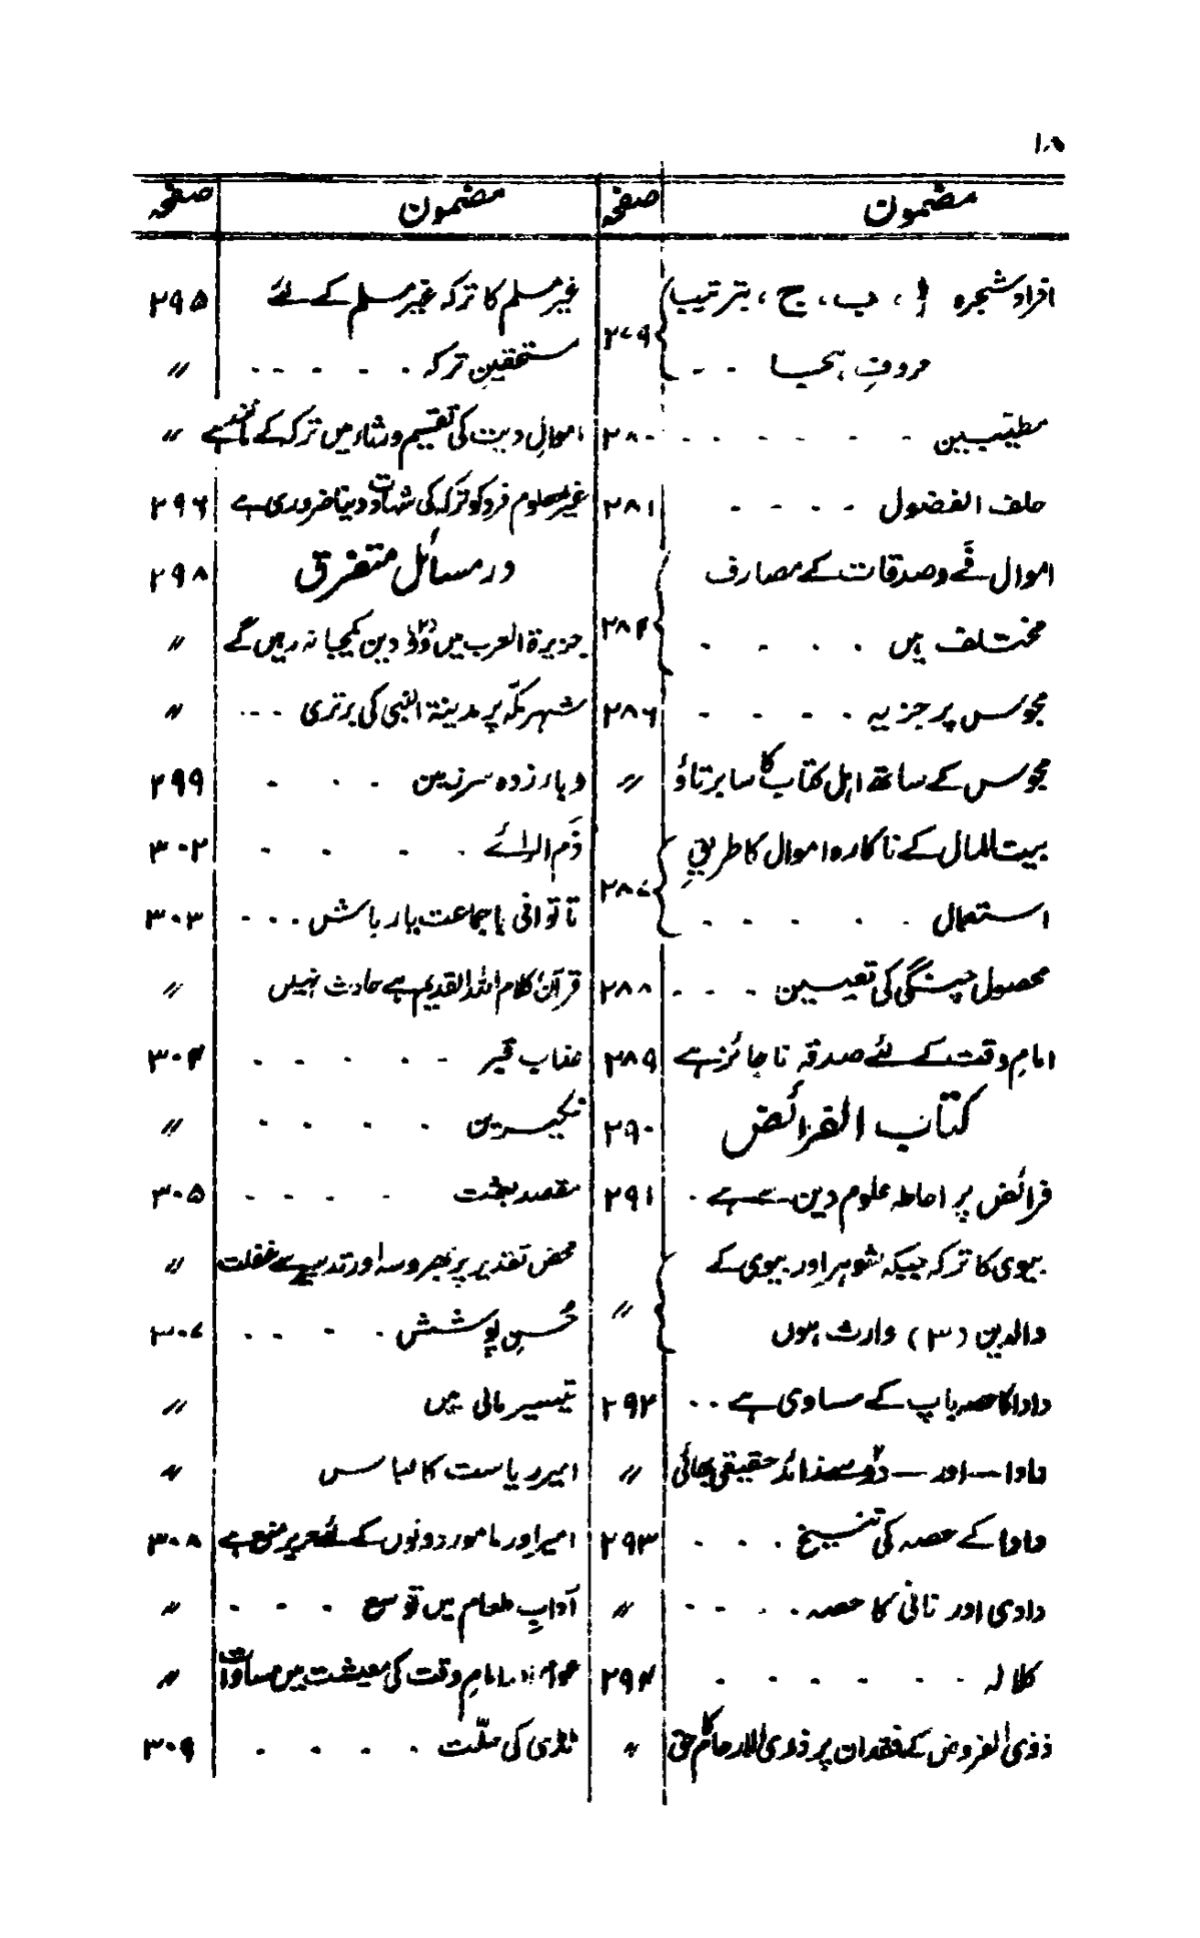 مضمون صفحہ مضمون صفحہ
افراد شجرہ ا، ب، ج، بترتیب
حروفِ تہجیا - - ۲۷۹
مطیّبین - - - - - - ۲۸۰
حلف الفضول - - - - ۲۸۱
اموال فَے وصدقات کے مصارف
مختلف ہیں - - - - ۲۸۴
مجوس پر جزیہ - - - - ۲۸۶
مجوس کے ساتھ اہل کتاب کا سا برتاؤ 〃
بیت المال کے ناکارہ اموال کا طریقِ
استعمال - - - - - ۲۸۷
محصول چنگی کی تعیین - - - ۲۸۸
امامِ وقت کے لئے صدقہ ناجائز ہے ۲۸۹
کتاب الفرائض ۲۹۰
فرائض پر احاطہ علوم دین سے ہے - ۲۹۱
بیوی کا ترکہ جبکہ شوہر اور بیوی کے
والدین (۳) وارث ہوں 〃
دادا کا حصہ باپ کے مساوی ہے - - ۲۹۲
دادا — اور — دو سے زائد حقیقی بھائی 〃
دادا کے حصہ کی تنسیخ - - - ۲۹۳
دادی اور نانی کا حصہ - - - - 〃
کلالہ - - - - - - ۲۹۴
ذوی الفروض کے فقدان پر ذوی الارحام کا حق 〃
غیر مسلم کا ترکہ غیر مسلم کے لئے ۲۹۵
مستحقینِ ترکہ - - - - - 〃
اموالِ دیت کی تقسیم ورثاء میں ترکہ کے مانند ہے 〃
غیر معلوم فرد کو ترکہ کی شہادت دینا ضروری ہے ۲۹۶
در مسائل متفرق ۲۹۸
جزیرۃ العرب میں دو (۲) دین یکجا نہ رہیں گے 〃
شہر مکّہ پر مدینۃ النبی کی برتری - - - 〃
وباء زدہ سرزمین - - - ۲۹۹
ذَم الرائے - - - - - ۳۰۲
ناتوانی یا جماعت یار باش - - - ۳۰۳
قرآن کلام اللہ القدیم ہے حادث نہیں 〃
عذاب قبر - - - - - ۳۰۴
نکیرین - - - - 〃
مقصد بعثت - - - - ۳۰۵
محض تقدیر پر بھروسہ اور تدبیر سے غفلت 〃
حُسنِ پوشش - - - - ۳۰۷
تیسیر مالی میں 〃
امیر ریاست کا لباس 〃
امیر اور مامور دونوں کے لئے حریر منع ہے ۳۰۸
آدابِ طعام میں توسع - - - 〃
عوام اور امامِ وقت کی معیشت میں مساوات 〃
ٹڈی کی حلّت - - - - ۳۰۹